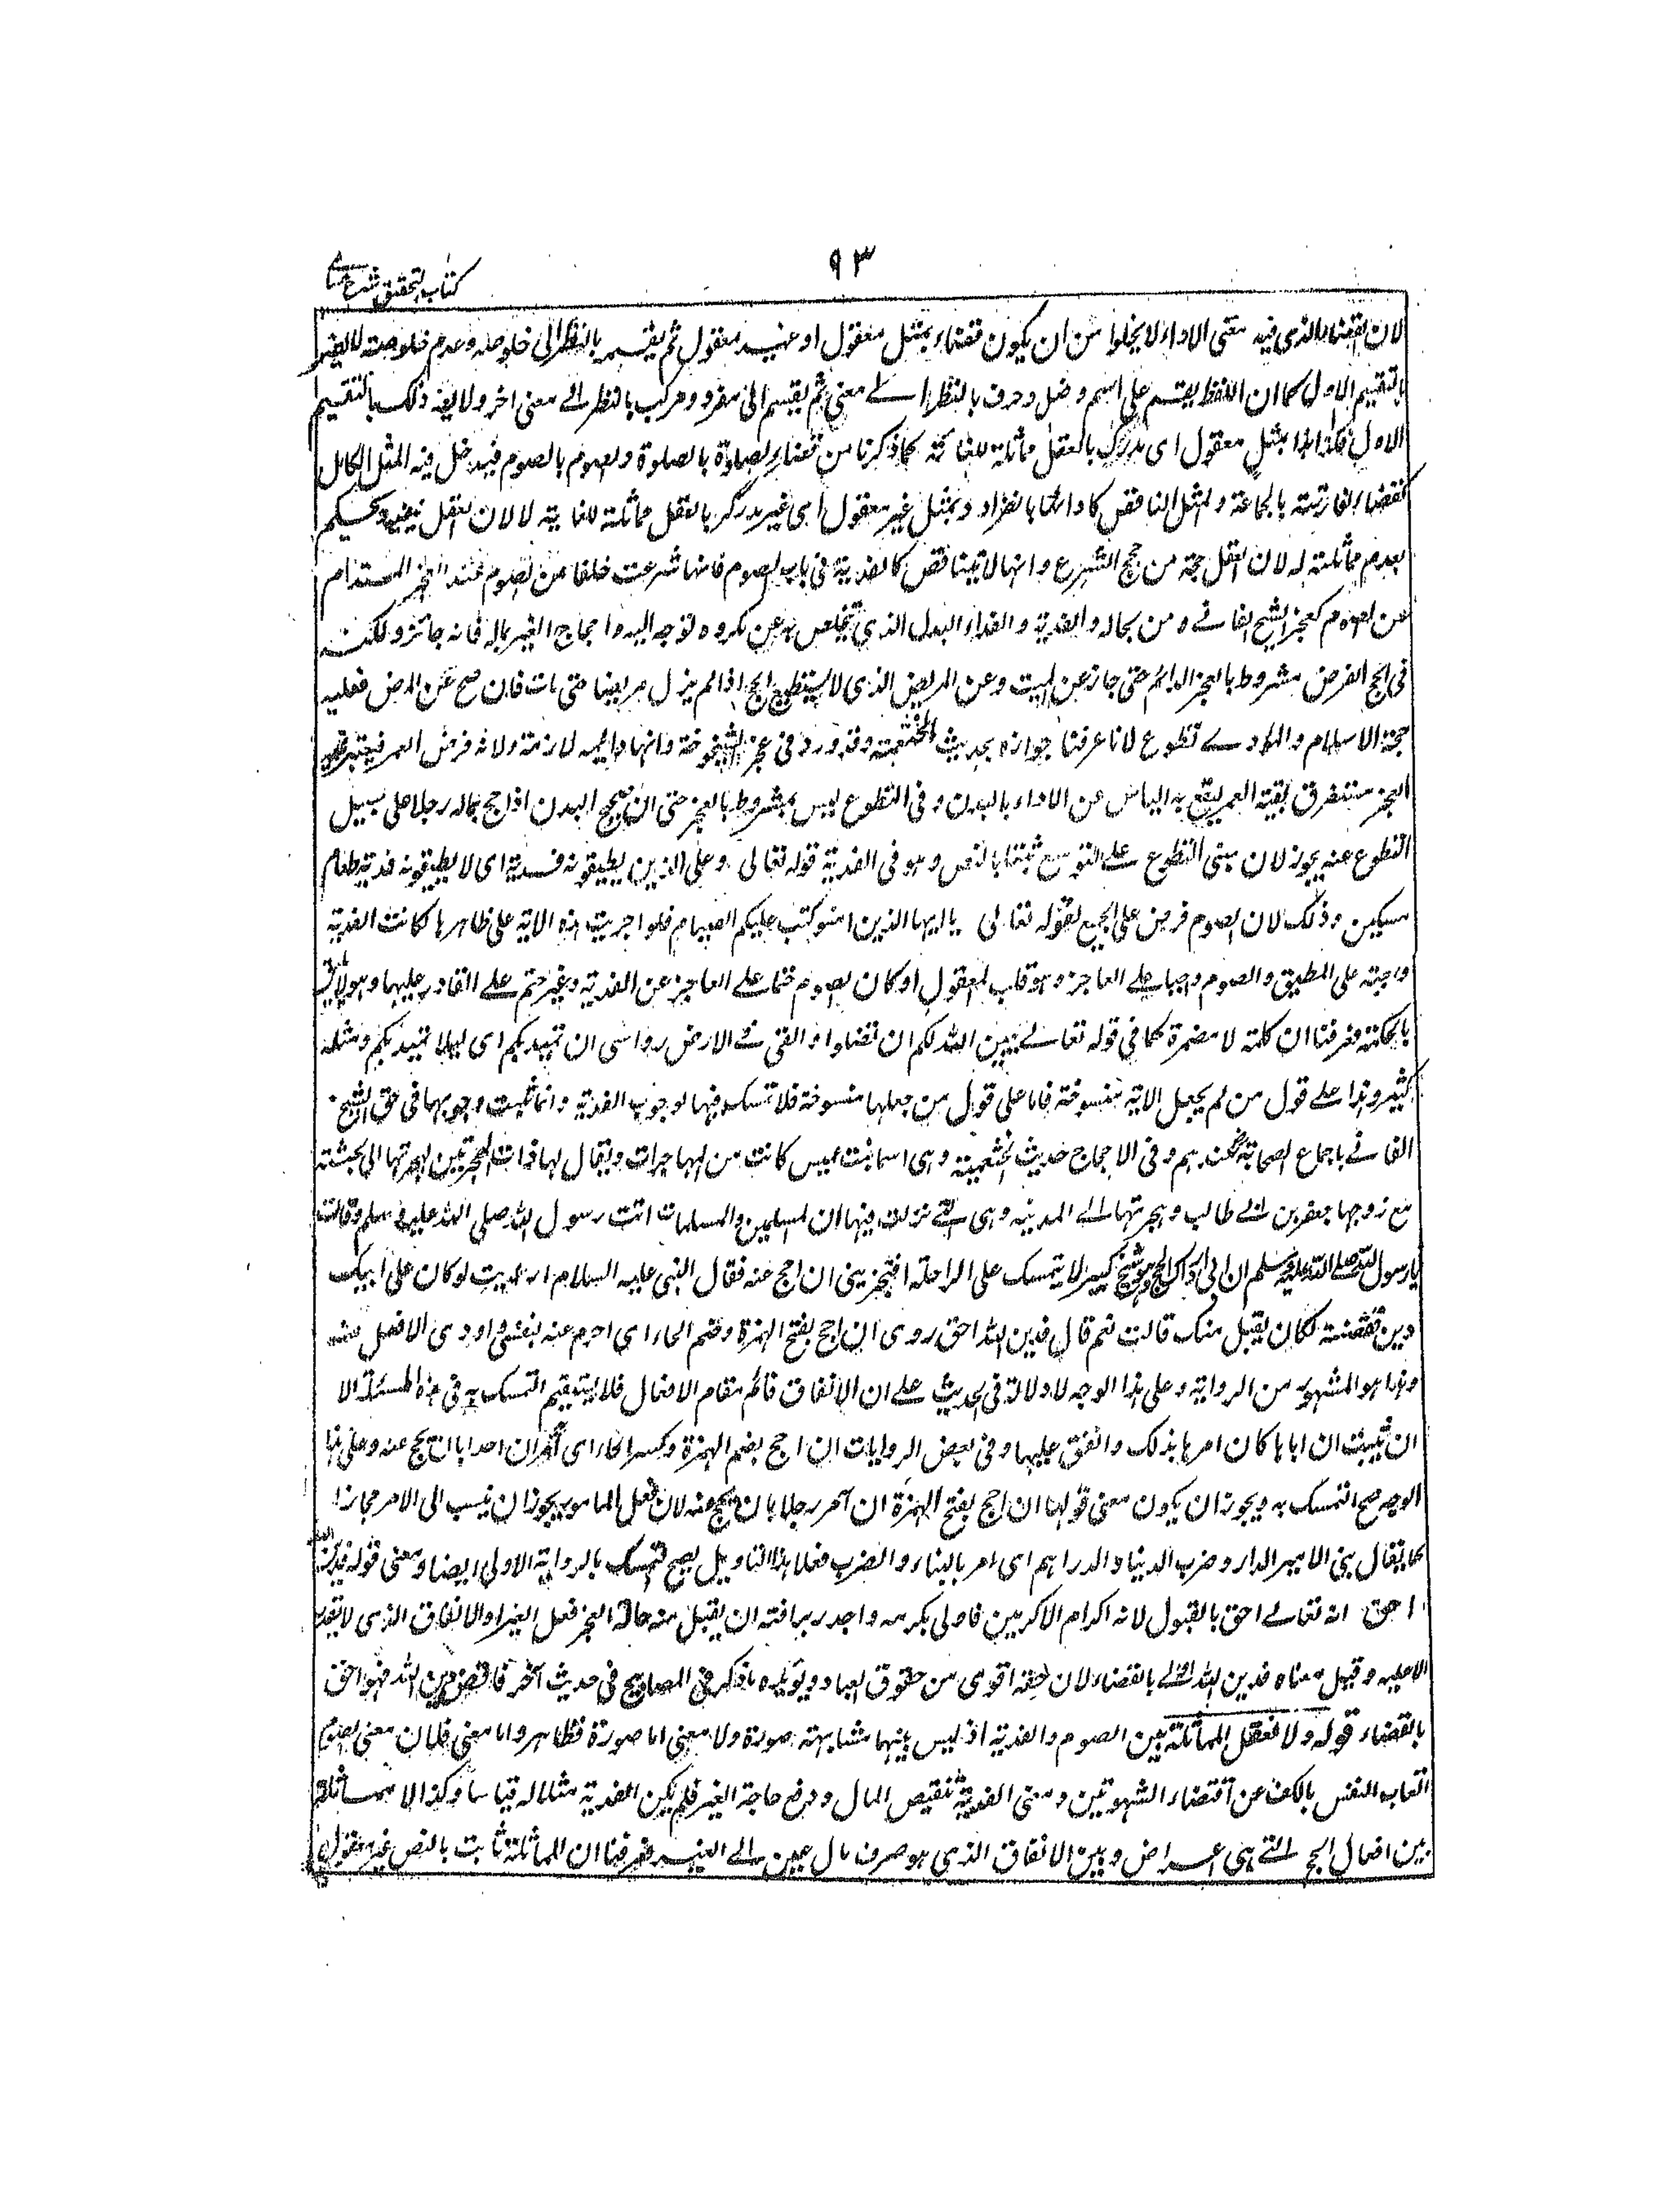 ٩٣
كتاب التحقيق شرح حسامي
لان القضاء الذي فيه معنى الاداء لا يخلوا من ان يكون قضاء بمثل معقول او غير معقول ثم يقسم بالنظر الى خلوصه وعدم خلوصه لا بالنظر
بالتقسيم الاول كما ان اللفظ يقسم على اسم وفعل وحرف بالنظر الے معنى ثم يقسم الى مفرد ومركب بالنظر الے معنى اخر ولا ذلك بالتقسيم
الاول فكذا هذا بمثل معقول اى يدرك بالعقل مماثلته للفائتة كما ذكرنا من قضاء الصلوة بالصلوة والصوم بالصوم فيدخل فيه المثل الكامل
كقضاء الفائتة بالجماعة والمثل الناقص كادائها بانفراد وبمثل غير معقول اى غير مدرك بالعقل مماثلته للفائتة لا لان العقل ينفيه ويحكم
بعدم مماثلته له لان العقل حجة من حجج الشرع وانها لا يتناقض كالفدية فى باب الصوم فانها شرعت خلفا من الصوم عند العجز المستدام
عن الصوم كعجز الشيخ الفانے ومن بحاله والفدية والفداء البدل الذي يتخلص به عن مكروه توجه اليه واحجاج الغير بماله فانه جائز ولكنه
فى الحج الفرض مشروط بالعجز الدائم حتى جاز عن الميت وعن المريض الذى لا يستطيع الحج اذا لم يزل مريضا حتى مات فان صح عن المرض فعليه
حجة الاسلام والمؤدے تطوع لانا عرفنا جوازه بحديث الخثعمية وقد ورد فى عجز الشيخوخة وانها دائمة لازمة ولانه فرض العمر فيعتبر فيه
العجز مستغرق لبقية العمر ليقع به الياس عن الاداء بالبدن وفى التطوع ليس بمشروط بالعجز حتى ان صحيح البدن اذا حج بماله رجلا على سبيل
التطوع عنه يجوز لان مبنى التطوع علے التوسع ثبتا بالنص وهو فى الفدية قوله تعالى وعلى الذين يطيقونه فدية اى لا يطيقونه فدية طعام
مسكين وذلك لان الصوم فرض على الجميع لقوله تعالى يا ايها الذين امنوا كتب عليكم الصيام فلو اجريت هذه الاية على ظاهرها كانت الفدية
واجبة على المطيق والصوم واجبا علے العاجز وهو قلب المعقول او كان الصوم حتما علے العاجز عن الفدية وغير حتم علے القادر عليها وهو لا يليق
بالحكمة فعرفنا ان كلمة لا مضمرة كما فى قوله تعالے يبين الله لكم ان تضلوا والقى فے الارض رواسى ان تميد بكم اى ليلا تميد بكم ومثله
كثير وهذا علے قول من لم يجعل الاية منسوخة فاما على قول من جعلها منسوخة فلا تمسك فيها لوجوب الفدية وانما ثبت وجوبها فى حق الشيخ
الفانے باجماع الصحابة وهم وفى الاحجاج حديث الخثعمية وهى اسما بنت عميس كانت من المهاجرات ويقال لها ذات الهجرتين لهجرتها الى الحبشة
مع زوجها جعفر بن ابے طالب وهجرتها الے المدينة وهى التے نزلت فيها ان المسلمين والمسلمات اتت رسول الله صلى الله عليه وسلم وقالت
يا رسول الله صلے الله عليه وسلم ان ابى ادركه الحج وهو شيخ كبير لا يتمسك على الراحلة افتجزينى ان احج عنه فقال النبى عليه السلام ارايت لو كان على ابيك
دين فقضيته اكان يقبل منك قالت نعم قال فدين الله احق روى ان احج بفتح الهمزة وضم الحاء اى احرم عنه بنفسى واودى الافعل عنه
وهذا هو المشهور من الرواية وعلى هذا الوجه لا دلالة فى الحديث علے ان الانفاق قائم مقام الافعال فلا يستقيم التمسك به فى هذه المسئلة الا
ان يثبت ان اباها كان امرها بذلك وانفق عليها وفى بعض الروايات ان احج بضم الهمزة وكسر الحاء اى آمر ان احدا بان يحج عنه وعلى هذا
الوجه صح التمسك به ويجوز ان يكون معنى قولها ان احج بفتح الهمزة ان آمر رجلا بان يحج عنه لان فعل المامور يجوز ان ينسب الى الامر مجازا
كما يقال بنى الامير الدار وضرب الدينار والدراهم اى امر بالبناء والضرب فعلا هذا التاويل يصح التمسك بالرواية الاولى ايضا ومعنى قوله فدين الله
احق انه تعالے احق بالقبول لانه اكرام الاكرمين فاولى بكرمه واجدر برافته ان يقبل منه حالة العجز فعل الغير او الانفاق الذى لا يقدر
الا عليه وقيل معناه فدين الله احق بالقضاء لان حقه اقوى من حقوق العباد ويؤيده ما ذكر فى المصابيح فى حديث آخر فاقض دين الله فهو احق
بالقضاء قوله ولا نعقل المماثلة بين الصوم والفدية اذ ليس بينهما مشابهة صورة ولا معنى اما صورة فظاهر واما معنى فلان معنى الصوم
اتعاب النفس بالكف عن اقتضاء الشهوتين ومعنى الفدية تنقيص المال ودفع حاجة الغير فلم يكن الفدية مثلا له قياسا وكذا لا مماثلة
بين افعال الحج التے هى اعراض وبين الانفاق الذى هو صرف مال عين الے الغير فعرفنا ان المماثلة ثابت بالنص غير معقول